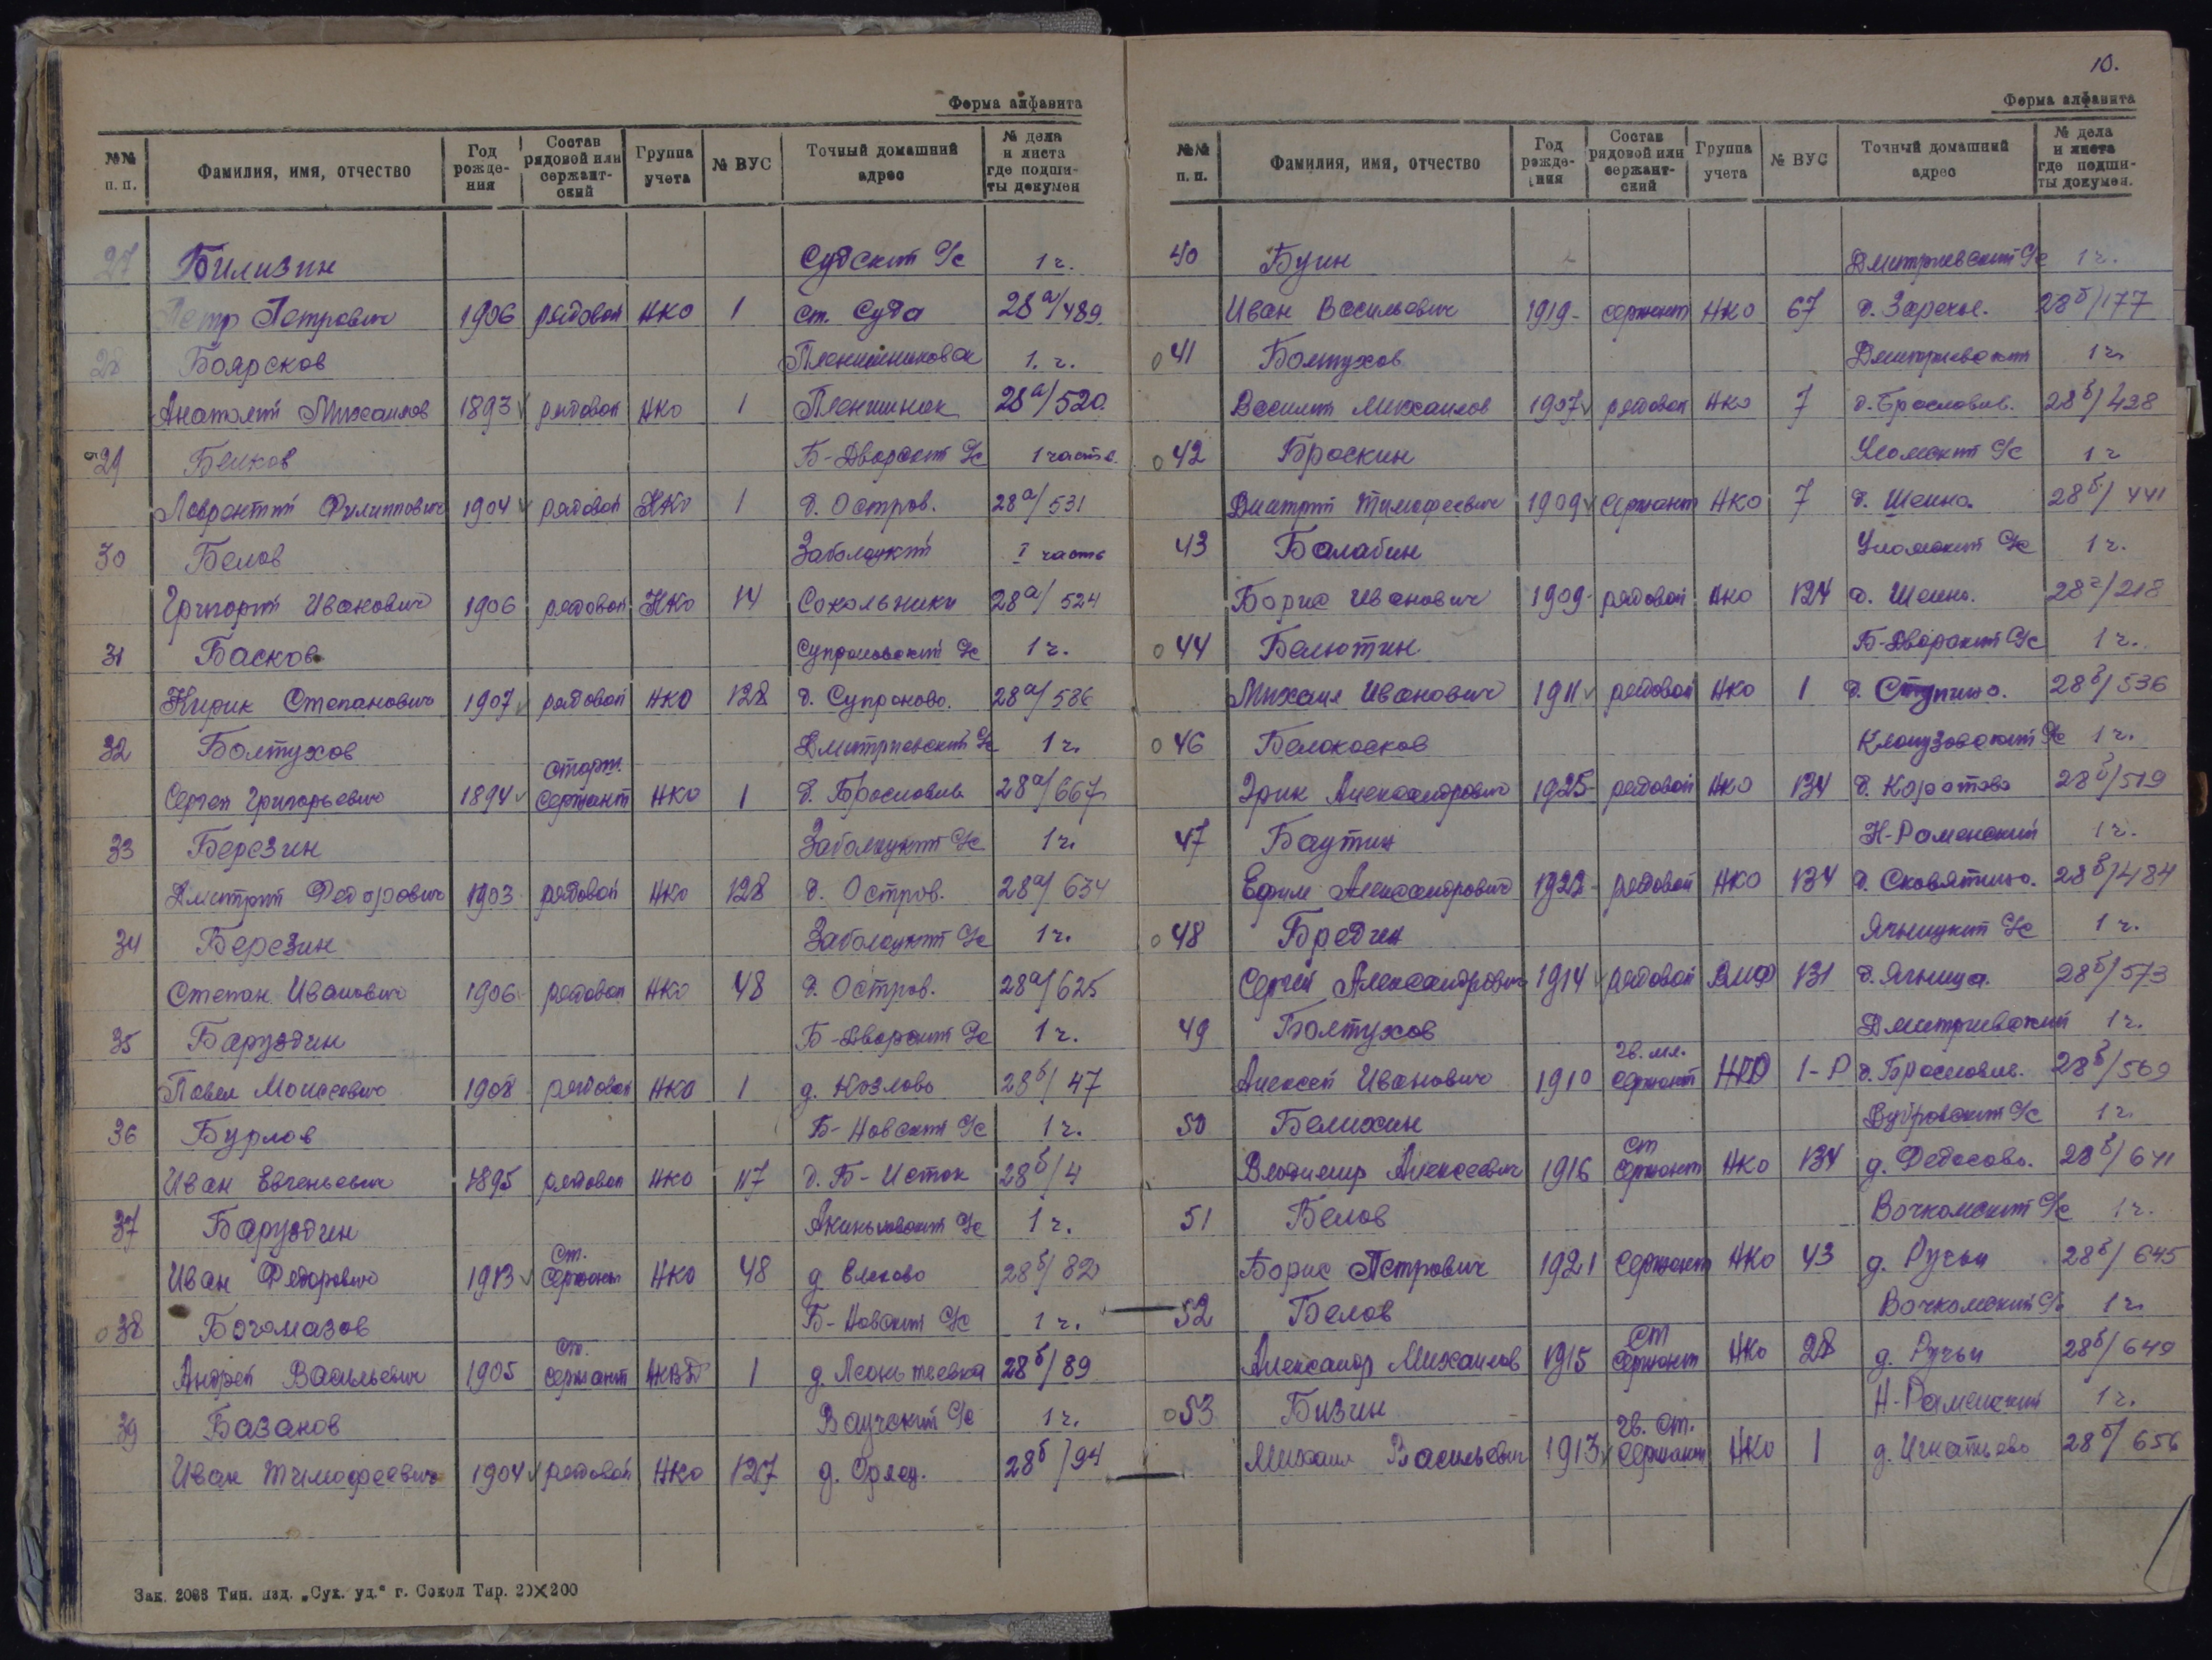 Форма алфавита
№№ п. п. Фамилия, имя, отчество Год рожде-ния Состав рядовой или сержант-ский Группа учета № ВУС Точный домашний адрес № дела и листа где подши-ты докумен
27 Билизин Судский С/с 1 ч.
Петр Петрович 1906 рядовой НКО 1 ст. Суда 28а/489
28 Боярсков 1. ч.
Анатолий Михайлов 1893 рядовой НКО 1 28а/520
29 Белков Б-Дворский С/с 1 часть
Лаврентий Филиппович 1904 рядовой НКО 1 д. Остров. 28а/531
30 Белов Заболоцкий I часть
Григорий Иванович 1906 рядовой НКО 14 Сокольники 28а/524
31 Басков Супроновский С/с 1 ч.
Кирик Степанович 1907 рядовой НКО 128 д. Супроново. 28а/586
32 Болтухов Дмитриевский С/с 1 ч.
Сергей Григорьевич 1894 старш. сержант НКО 1 д. Брословив. 28а/667
33 Березин Заболоцкий С/с 1 ч.
Дмитрий Федорович 1903 рядовой НКО 128 д. Остров. 28а/634
34 Березин Заболоцкий С/с 1 ч.
Степан Иванович 1906 рядовой НКО 48 д. Остров. 28а/625
35 Баруздин Б-Дворский С/с 1 ч.
Павел Моисеевич 1908 рядовой НКО 1 д. Козлово 28б/47
36 Бурлов Б-Новский С/с 1 ч.
Иван Евгеньевич 1895 рядовой НКО 117 д. Б-Исток 28б/4
37 Баруздин С/с 1 ч.
Иван Федорович 1913 Ст. сержант НКО 48 д. 28б/82
38 Богомазов Б-Новский С/с 1 ч.
Андрей Васильевич 1905 Ст. сержант НКВД 1 д. Леонтьевка 28б/89
39 Базанов Ваучский С/с 1 ч.
Иван Тимофеевич 1904 рядовой НКО 127 д. 28б/94
Зак. 2088 Тип. изд. „Сух. уд.“ г. Сокол Тир. 20×200
10.
Форма алфавита
№№ п. п. Фамилия, имя, отчество Год рожде-ния Состав рядовой или сержант-ский Группа учета № ВУС Точный домашний адрес № дела и листа где подши-ты докумен.
40 Буин Дмитриевский С/с 1 ч.
Иван Васильевич 1919 сержант НКО 67 д. Заречье. 28б/177
41 Болтухов Дмитриевский 1 ч.
Василий Михайлов 1907 рядовой НКО 7 д. Брословив. 28б/428
42 Броскин Уломский С/с 1 ч
Дмитрий Тимофеевич 1909 сержант НКО 7 д. Шеино. 28б/441
43 Балабин Уломский С/с 1 ч.
Борис Иванович 1909 рядовой НКО 124 д. Шеино. 28г/218
44 Белютин Б-Дворский С/с 1 ч.
Михаил Иванович 1911 рядовой НКО 1 д. Ступино. 28б/536
46 Белокосков Клопузовский С/с 1 ч.
Эрик Александрович 1925 рядовой НКО 134 д. Коротово 28б/519
47 Баутин Н-Раменский 1 ч.
Ефим Александрович 1922 рядовой НКО 134 д. Сковятино. 28б/484
48 Бредин Ягницкий С/с 1 ч.
Сергей Александрович 1914 рядовой ВМФ 131 д. Ягница. 28б/573
49 Болтухов Дмитриевский 1 ч.
Алексей Иванович 1910 гв. мл. сержант НКО 1-Р д. Брословив. 28б/569
50 Белихин Дубровский С/с 1 ч.
Владимир Алексеевич 1916 ст сержант НКО 134 д. Федосово. 28б/641
51 Белов Вочкомский С/с 1 ч.
Борис Петрович 1921 сержант НКО 43 д. Ручьи 28б/645
52 Белов Вочкомский С/с 1 ч.
Александр Михайлов 1915 ст сержант НКО 28 д. Ручьи 28б/649
53 Бизин Н-Раменский 1 ч.
Михаил Васильевич 1913 гв. ст. сержант НКО 1 д. Игнатьево 28б/656